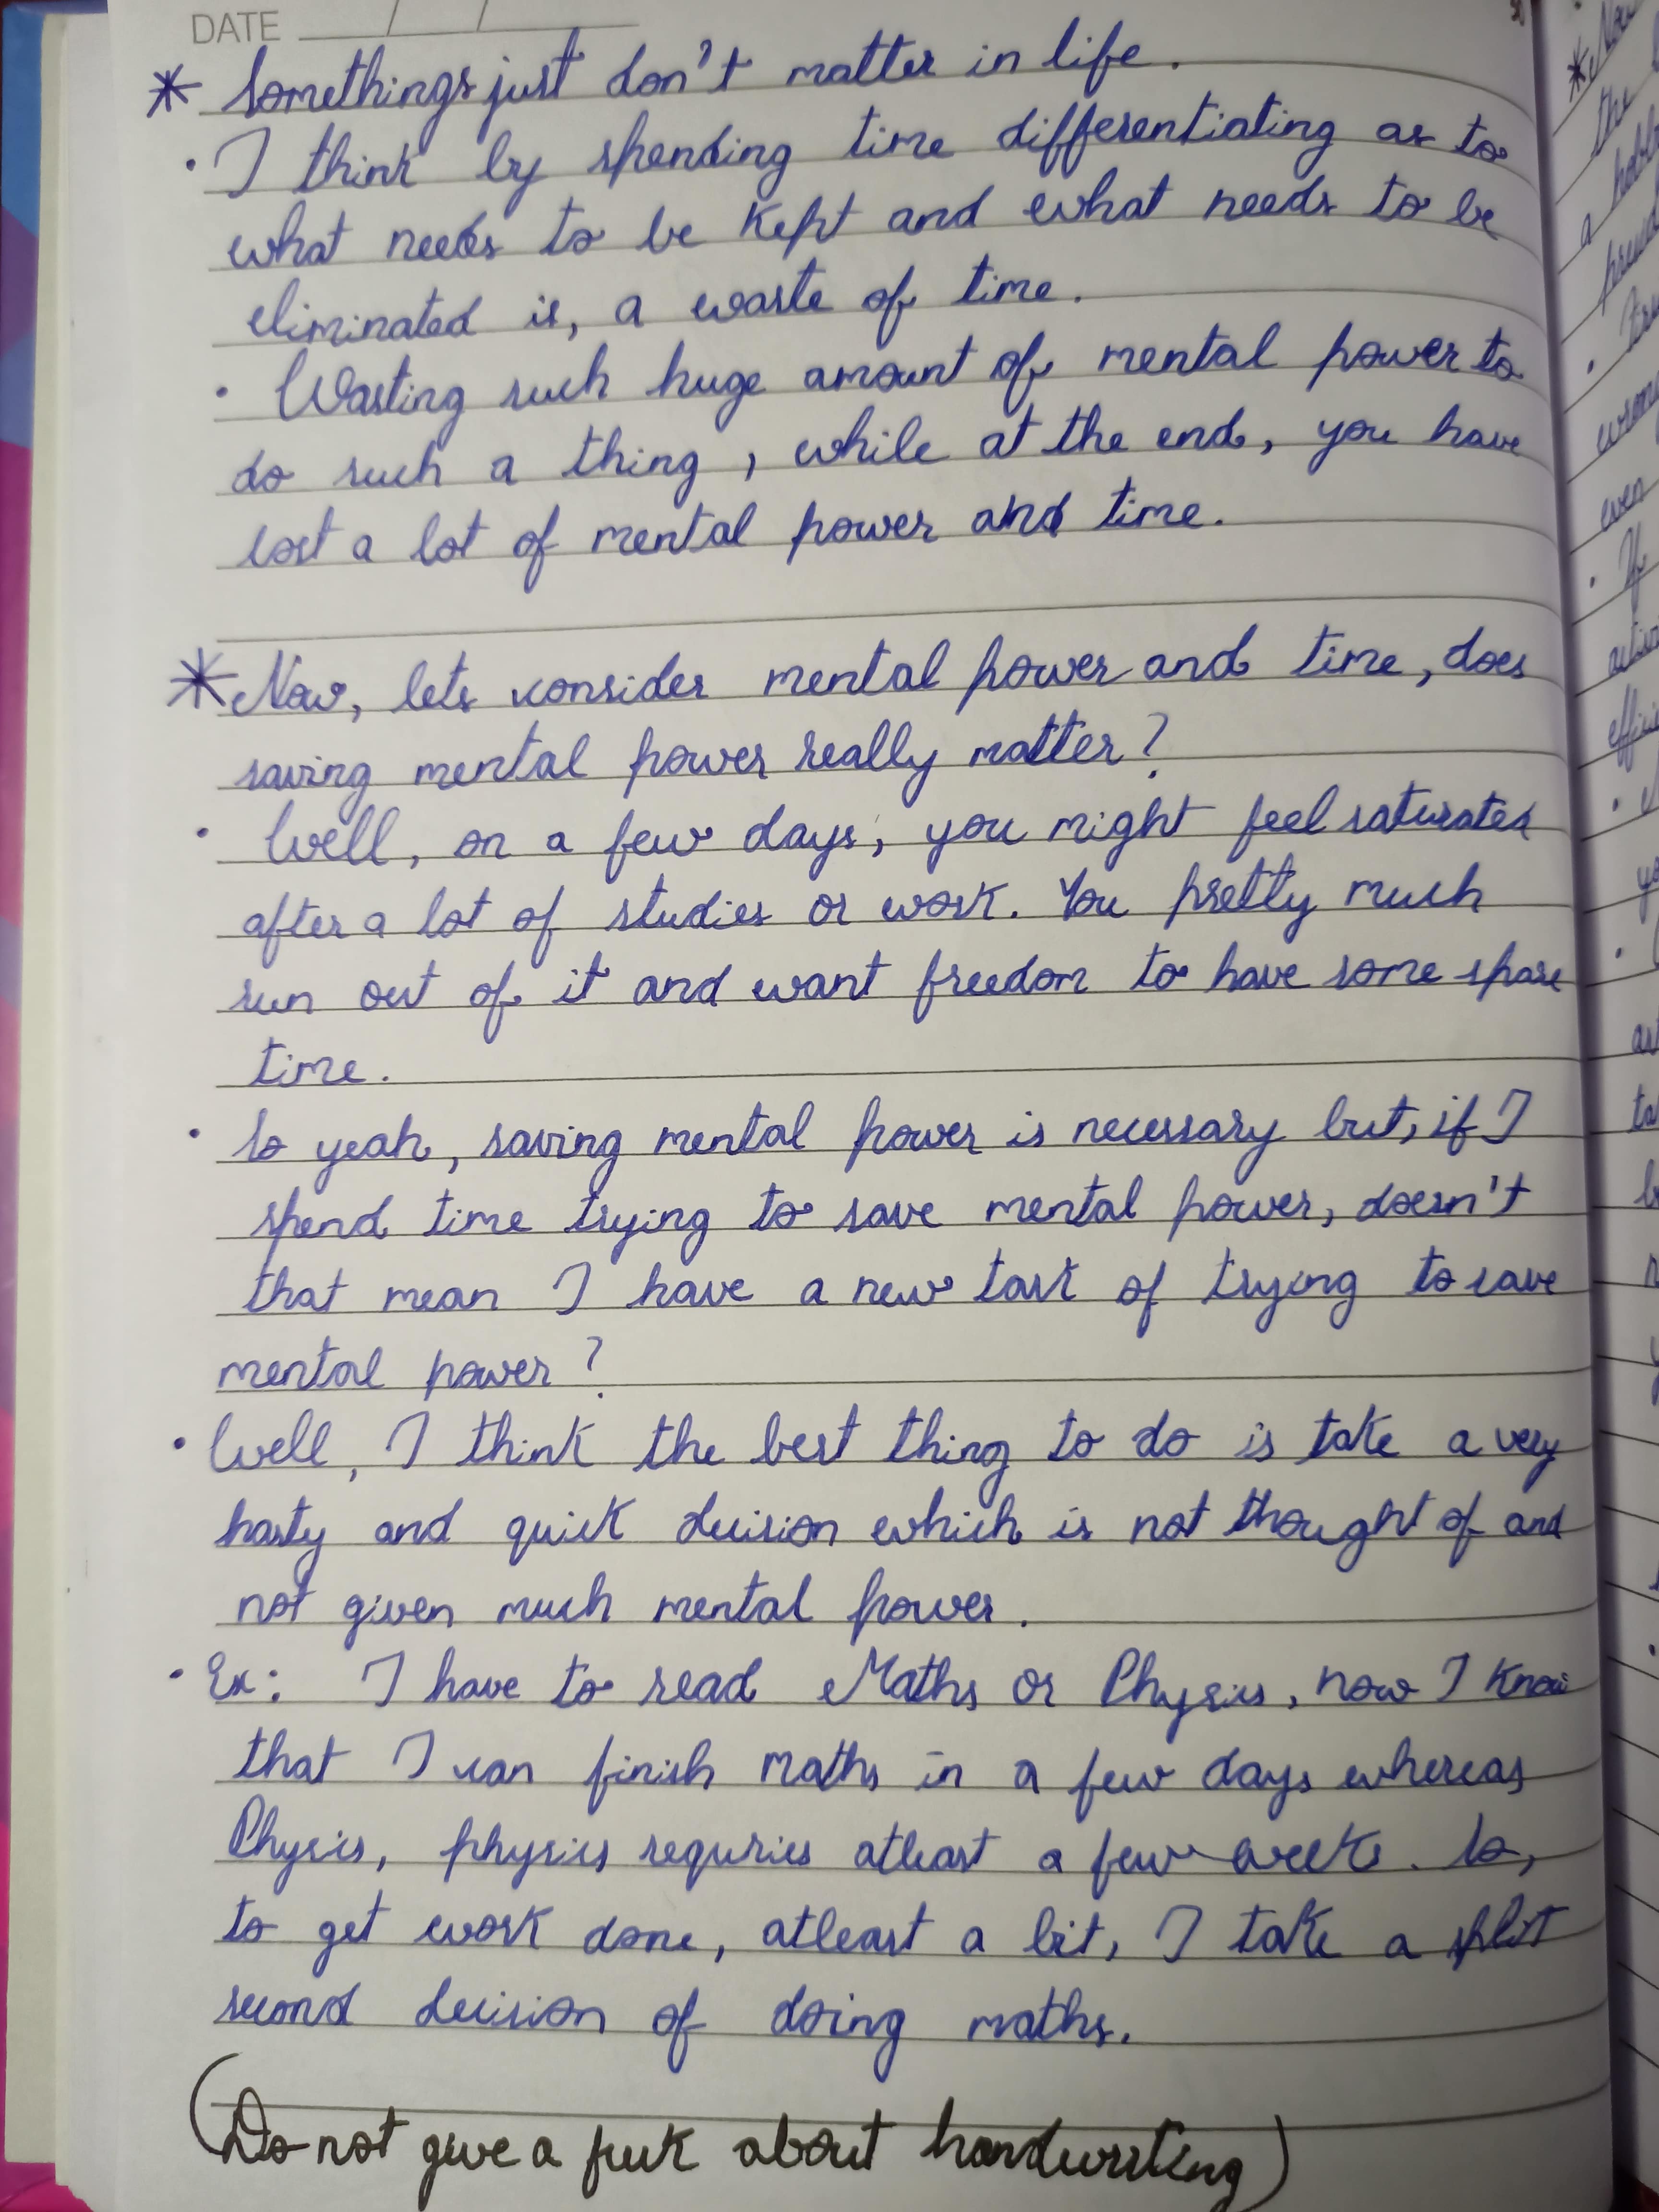 DATE __/__/__
* Somethings just don't matter in life.
• I think by spending time differentiating as to
what needs to be kept and what needs to be
eliminated is, a waste of time.
• Wasting such huge amount of mental power to
do such a thing, while at the end, you have
lost a lot of mental power and time.
* Now, lets consider mental power and time, does
saving mental power really matter?
• Well, on a few days, you might feel saturated
after a lot of studies or work. You pretty much
run out of it and want freedom to have some spare
time.
• So yeah, saving mental power is necessary but, if I
spend time trying to save mental power, doesn't
that mean I have a new task of trying to save
mental power?
• Well, I think the best thing to do is take a very
hasty and quick decision which is not thought of and
not given much mental power.
• Ex: I have to read Maths or Physics, now I know
that I can finish maths in a few days whereas
Physics, physics requries atleast a few weeks. So,
to get work done, atleast a bit, I take a split
second decision of doing maths.
(Do not give a fuck about handwriting)
* Now
the
a
wrong
even
• If